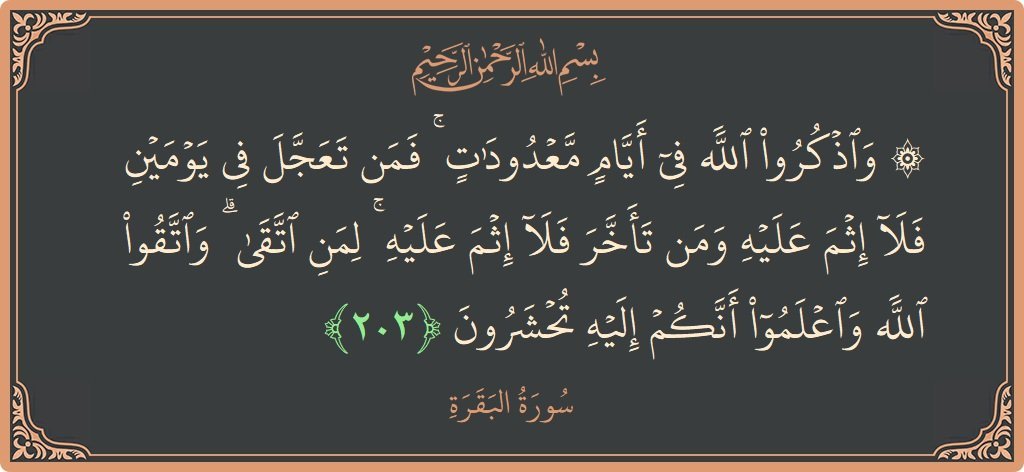 بِسْمِ اللَّهِ الرَّحْمَٰنِ الرَّحِيمِ
۞ وَٱذْكُرُوا۟ ٱللَّهَ فِىٓ أَيَّامٍ مَّعْدُودَٰتٍ ۚ فَمَن تَعَجَّلَ فِى يَوْمَيْنِ
فَلَآ إِثْمَ عَلَيْهِ وَمَن تَأَخَّرَ فَلَآ إِثْمَ عَلَيْهِ ۚ لِمَنِ ٱتَّقَىٰ ۗ وَٱتَّقُوا۟
ٱللَّهَ وَٱعْلَمُوٓا۟ أَنَّكُمْ إِلَيْهِ تُحْشَرُونَ ﴿٢٠٣﴾
سُورَةُ البَقَرَةِ